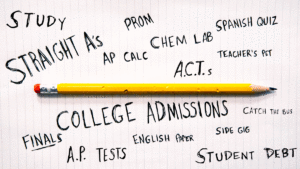 STUDY
PROM
SPANISH QUIZ
STRAIGHT A's
AP CALC
CHEM LAB
TEACHER'S PET
A.C.T.s
COLLEGE ADMISSIONS
CATCH THE BUS
FINALS
ENGLISH PAPER
SIDE GIG
A.P. TESTS
STUDENT DEBT